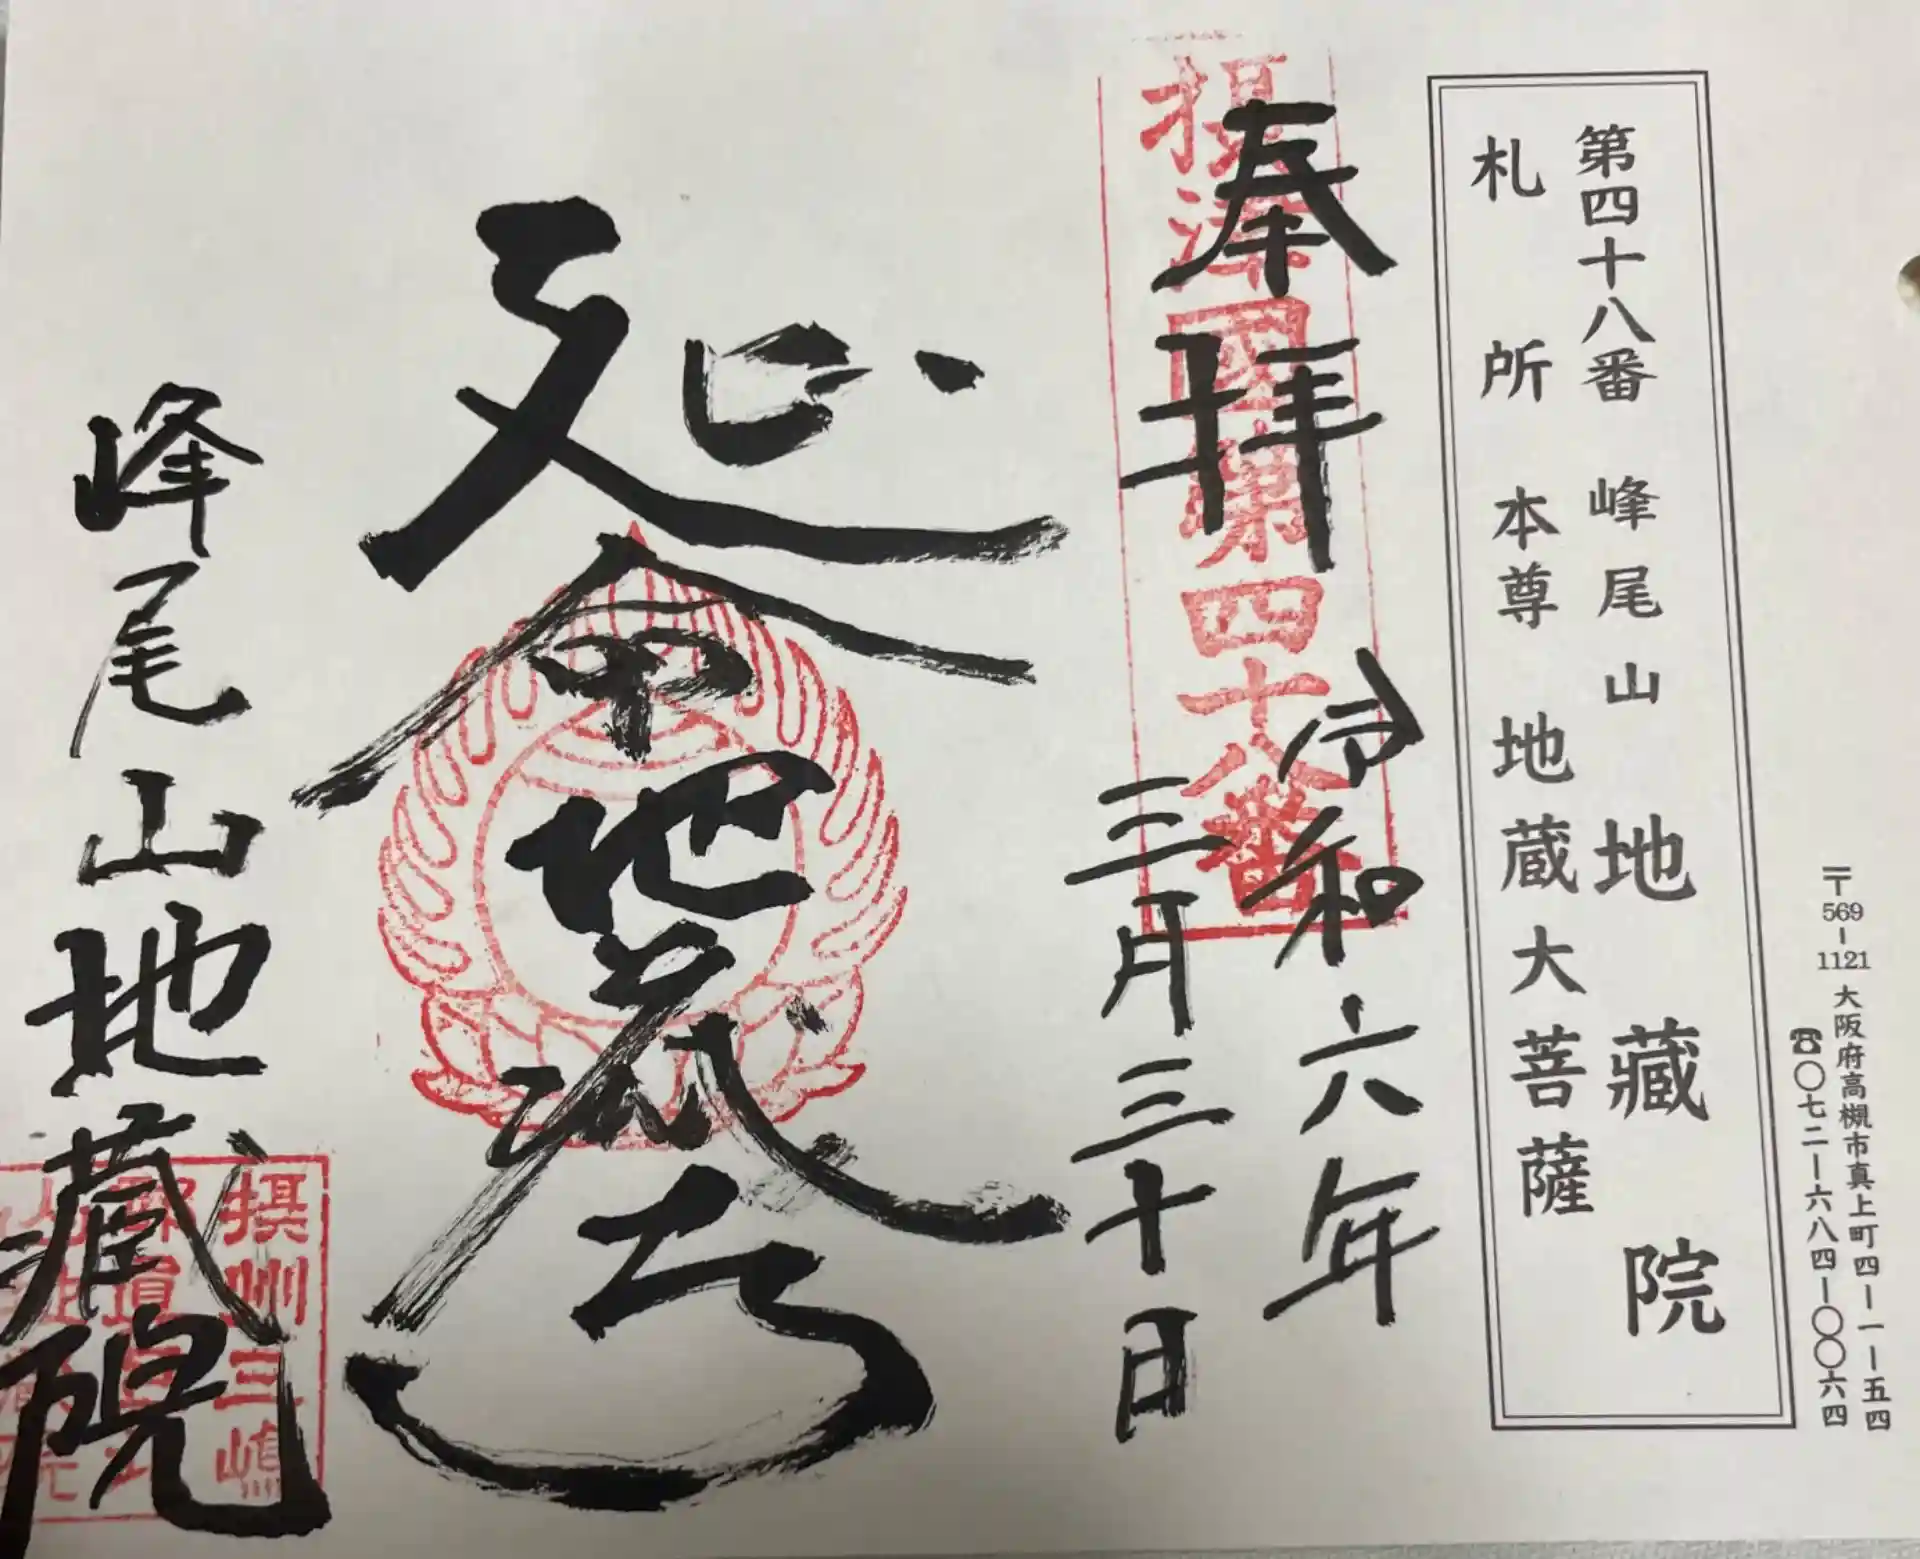 〒569-1121 大阪府高槻市真上町四ー一一ー五四
☎〇七二ー六八四ー〇〇六四
第四十八番 峰尾山 地藏院
札所本尊 地蔵大菩薩
奉拝
摂津國第四十八番
令和六年
三月三十日
延命地蔵尊
峰尾山地蔵院
摂州三嶋